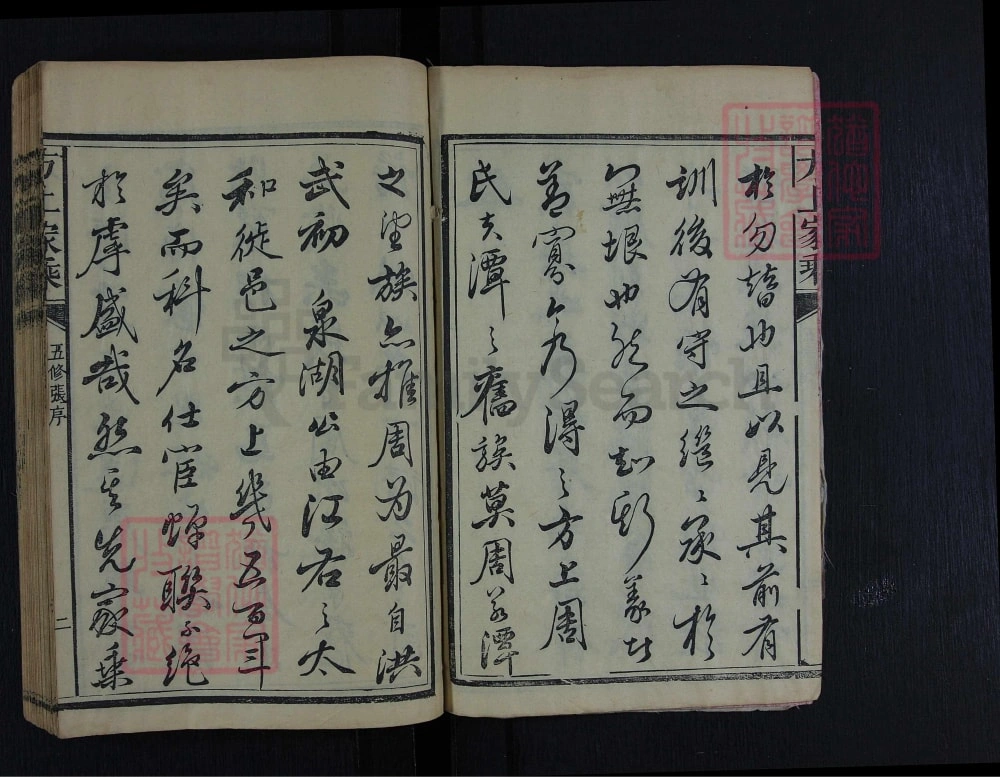 於勿替也且以見其前有
訓後有守之繼繼承承於
無垠也然而知斯義者
蓋寥寥乃得之方上周
氏夫潭之舊族莫周若潭
之望族亦推周为最自洪
武初 泉湖公由江右之太
和徙邑之方上幾五百年
矣而科名仕宦蟬聯不絕
於虖盛哉然其先家乘
方上家乘
五修張序
二
FamilySearch